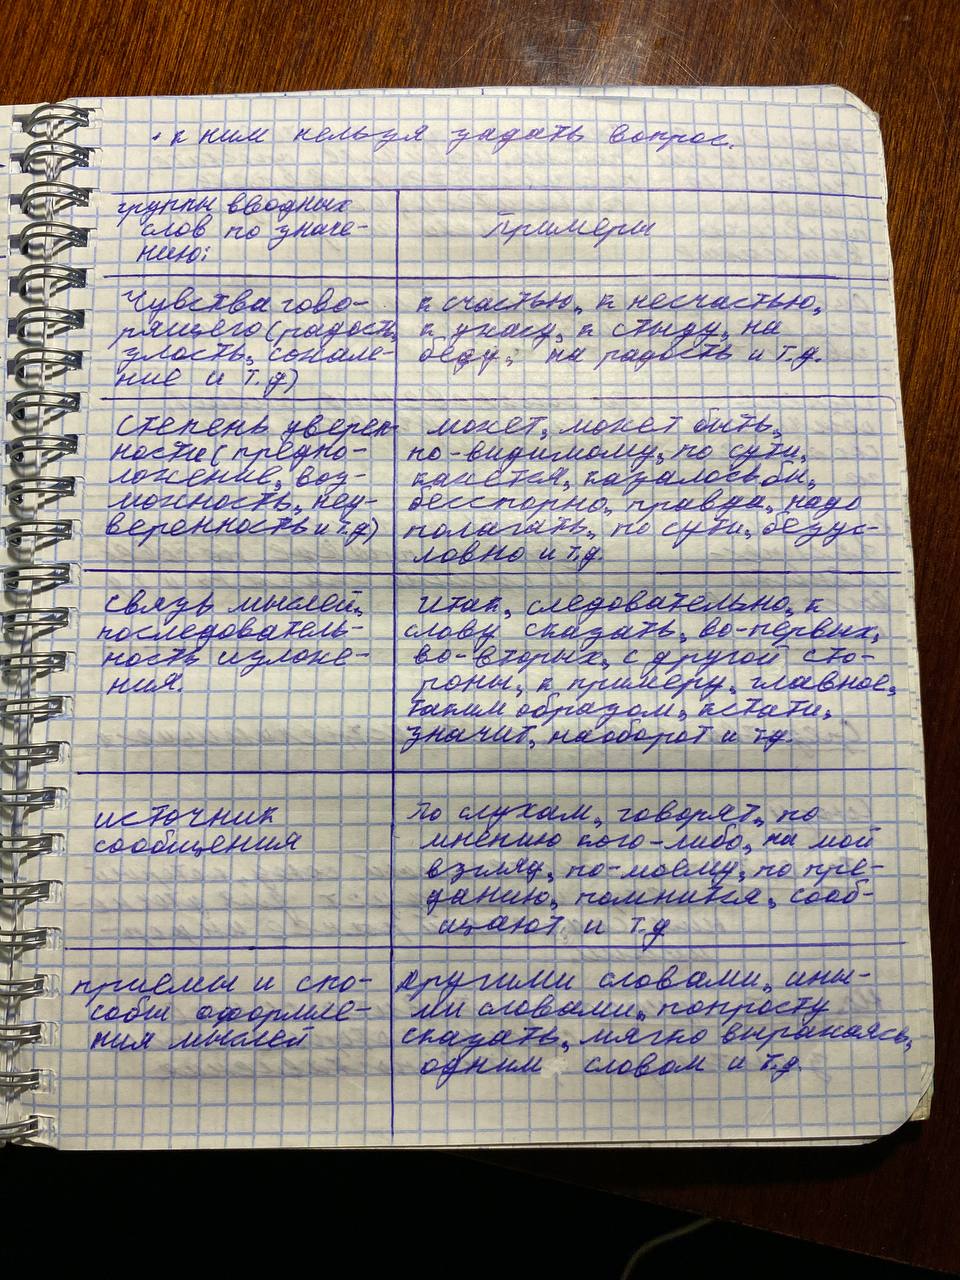 • к ним нельзя задать вопрос.
группы вводных
слов по значе-
нию:
Примеры
Чувства гово-
рящего (радость,
злость, сожале-
ние и т.д)
к счастью, к несчастью,
к ужасу, к стыду, на
беду, на радость и т.д.
степень уверен-
ности (предпо-
ложение, воз-
можность, неу-
веренность и т.д)
может, может быть,
по-видимому, по сути,
кажется, казалось бы,
бесспорно, правда, надо
полагать, по сути, безус-
ловно и т.д
связь мыслей,
последователь-
ность изложе-
ния.
Итак, следовательно, к
слову сказать, во-первых,
во-вторых, с другой сто-
роны, к примеру, главное,
таким образом, кстати,
значит, наоборот и т.д.
источник
сообщения
По слухам, говорят, по
мнению кого-либо, на мой
взгляд, по-моему, по пре-
данию, помнится, сооб-
щают и т.д
приёмы и спо-
собы оформле-
ния мыслей
Другими словами, ины-
ми словами, попросту
сказать, мягко выражаясь,
одним словом и т.д.